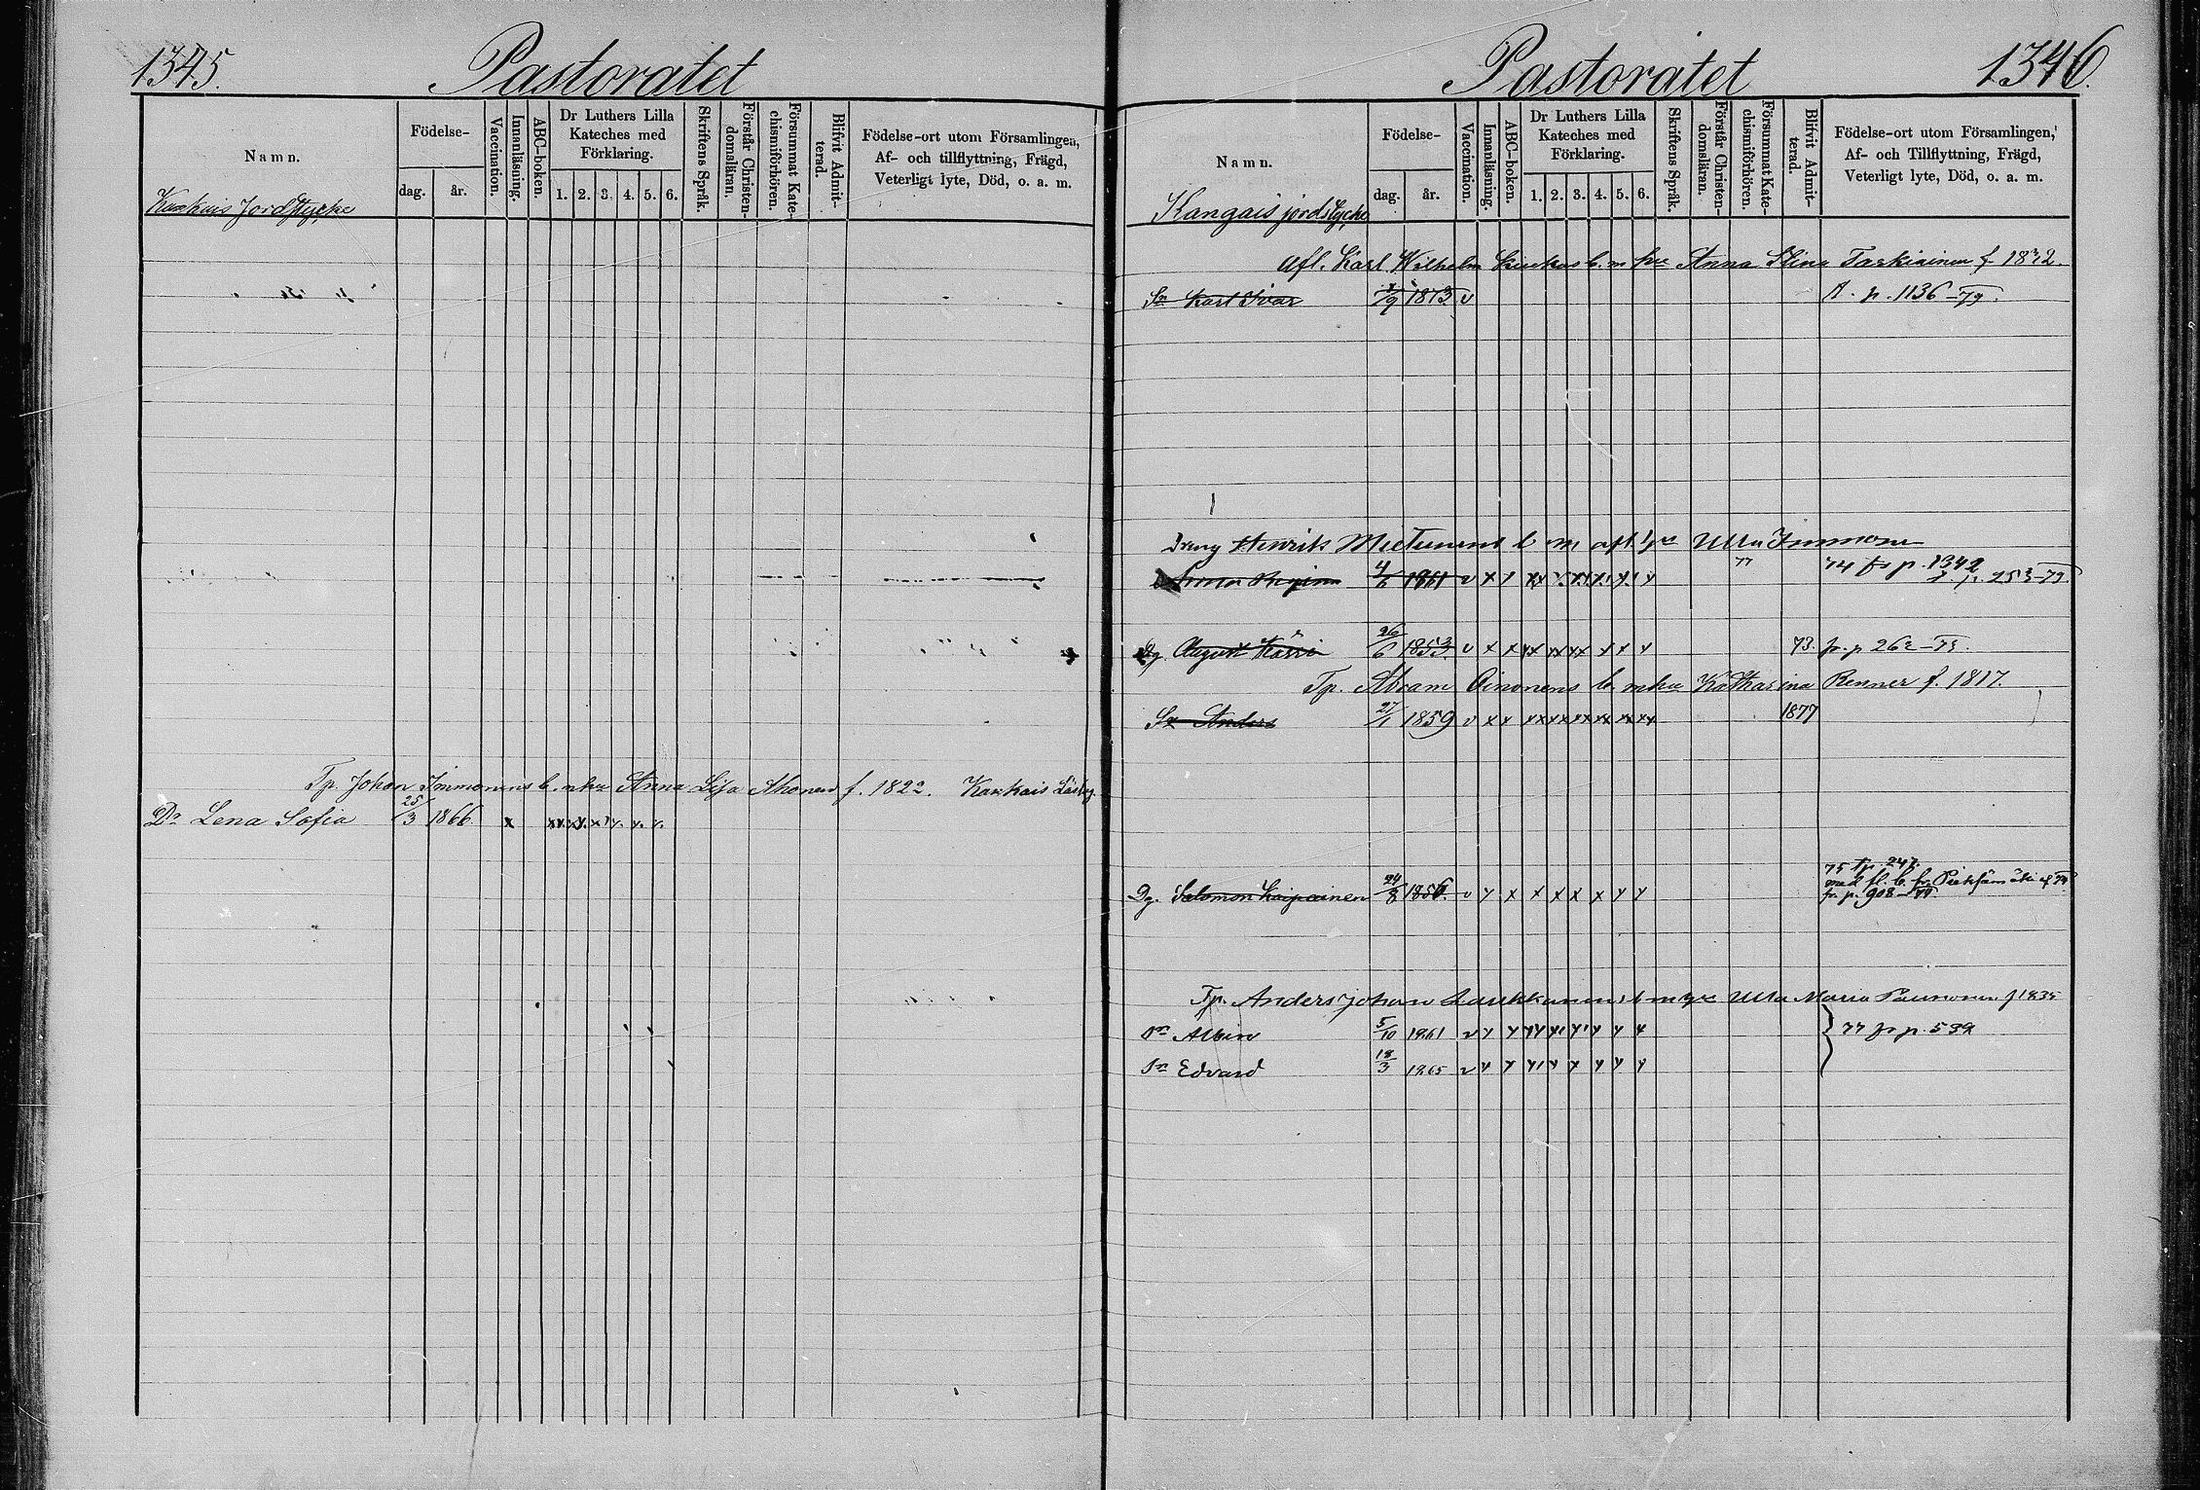 1345.
Pastoratet
Namn.
Födelse-
dag.
år.
Vaccination.
Innanläsning.
ABC-boken.
Dr Luthers Lilla
Kateches med
Förklaring.
1. 2. 3. 4. 5. 6.
Skriftens Språk.
Förstår Christen-
domsläran.
Försummat Kate-
chismiförhören.
Blifvit Admit-
terad.
Födelse-ort utom Församlingen,
Af- och tillflyttning, Frägd,
Veterligt lyte, Död, o. a. m.
Kaukais Jordstycke
Tp. Johan Immonens b. m hu Anna Lisa Ahonen f. 1822. Kaukais
Dr Lena Sofia 25/3 1866. x
Pastoratet
1346.
Namn.
Födelse-
dag.
år.
Vaccination.
Innanläsning.
ABC-boken.
Dr Luthers Lilla
Kateches med
Förklaring.
1. 2. 3. 4. 5. 6.
Skriftens Språk.
Förstår Christen-
domsläran.
Försummat Kate-
chismiförhören.
Blifvit Admit-
terad.
Födelse-ort utom Församlingen,
Af- och Tillflyttning, Frägd,
Veterligt lyte, Död, o. a. m.
Kangais jordstycke
afl. Karl Wilhelm b. m hu Anna Stina Taskinen f. 1832.
Sn Karl Ivar 1873 v p. 1136-79.
Dreng Henrik b m afl. Ulla Immonen
1861 v x x 77 74 fr p. 1342
p. 253-79.
Dg. August 26/6 1853. v x x 73. p. 262-75.
Tp. Abram Oinonens b. m hu Katharina Renner f. 1817.
Sn Anders 27/1 1859 v x x 1877
75 p. 247.
Dg. Salomon Kaipainen 24/8 1856. v x x x x x x x x
p. 908-77.
Tp. Anders Johan b m Ulla Maria Paunonen f 1835
Sn Albin 5/10 1861 77 fr p. 539
Sn Edvard 18/3 1865